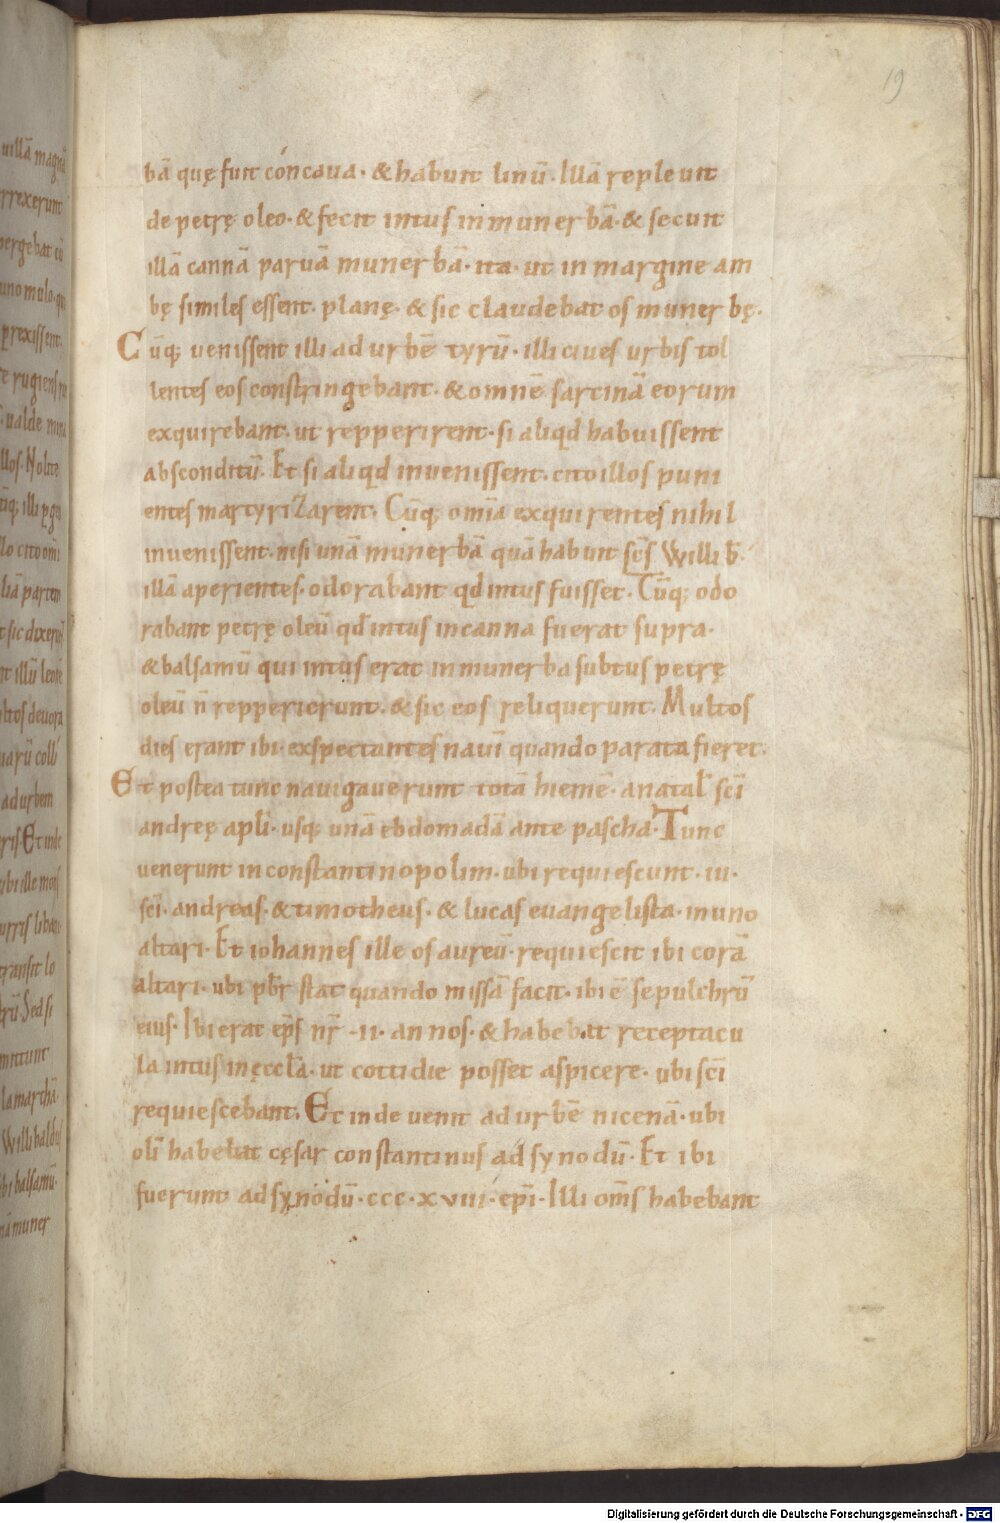 19
bā quę fuit cóncaua· & habuit linū· Illā repleuit
de petrę oleo· & fecit intus in munerbā· & secuit
illā cannā paruā munerbā· ita· ut in margine am
bę similes essent· planę· & sic claudebat os munerbę·
Cūq; uenissent illi ad urbē tyrū· illi ciues urbis tol
lentes eos constringebant· & omnē sarcinā eorum
exquirebant· ut repperirent· si aliqd habuissent
absconditū· Et si aliqd inuenissent· cito illos puni
entes martyrizarent· Cūq; omīa exquirentes nihil
inuenissent· nisi unā munerbā quā habuit scs̄ Willib̄·
illā aperientes· odorabant qd intus fuisset· Cūq; odo
rabant petrę oleū qd̄ intus in canna fuerat supra·
& balsamū qui intus erat in munerba subtus petrę
oleū n̄ repperierunt· & sic eos reliquerunt· Multos
dies erant ibi· exspectantes nauī quando parata fieret·
Et postea tunc nauigauerunt totā hiemē· a natal̄ scī
andreę apl̄i· usq; unā ebdomadā ante pascha· Tunc
uenerunt in constantinopolim· ubi requiescunt· iii·
scī· andreas· & timotheus· & lucas euangelista· in uno
altari· Et iohannes ille os aureū· requiescit ibi corā
altari· ubi pb̄r stat quando missā facit· ibi ē sepulchrū
eius· Ibi erat ep̄s nr̄ ·ii· annos· & habebat receptacu
la intus in ęccl̄a· ut cottidie posset aspicere· ubi scī
requiescebant· Et inde uenit ad urbē nicenā· ubi
olī habebat cęsar constantinus ad synodū· Et ibi
fuerunt ad synodū· ccc· xviii· ep̄i· Illi om̄s habebant
Digitalisierung gefördert durch die Deutsche Forschungsgemeinschaft - DFG